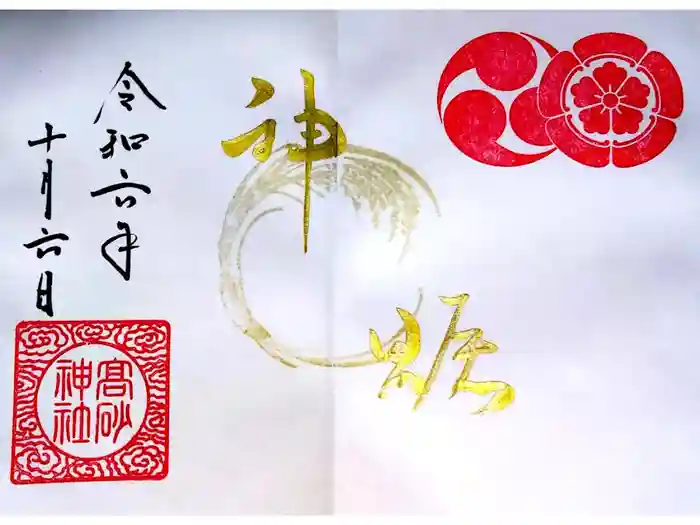 神賑
令和六年
十月六日
髙砂
神社